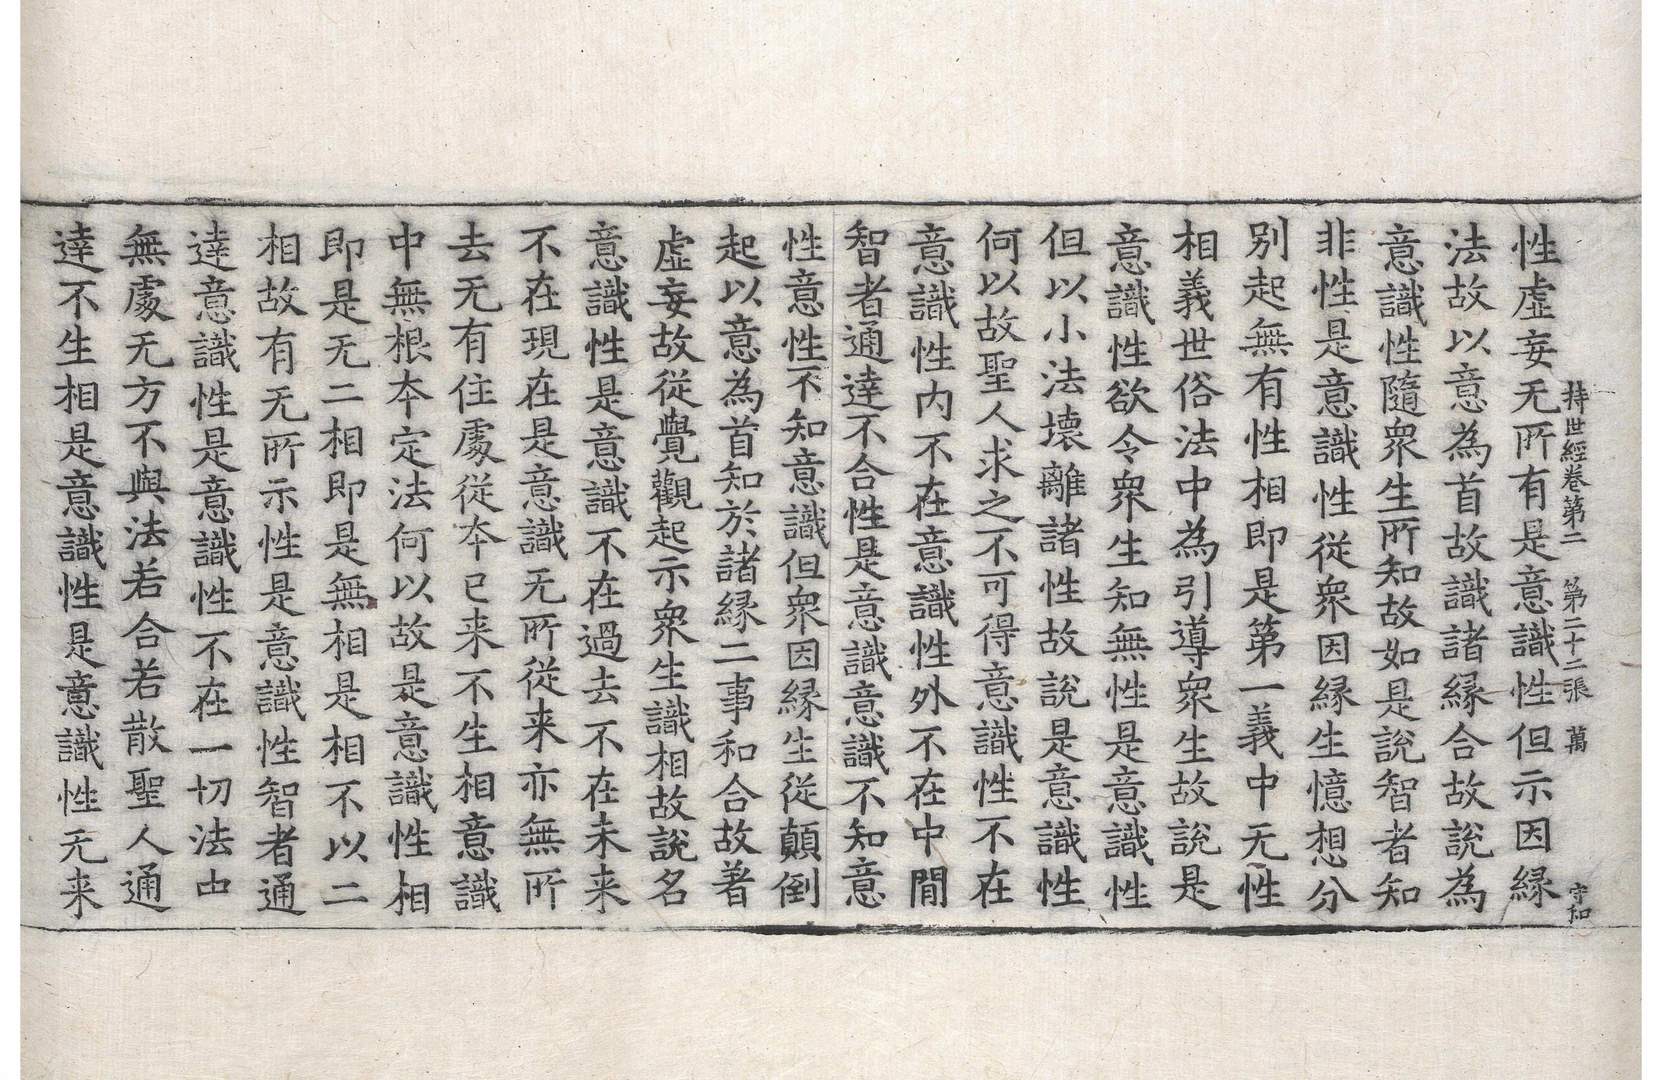 持世經卷第二 第二十二張 萬 守和
性虛妄无所有是意識性但示因緣
法故以意為首故識諸緣合故說為
意識性隨衆生所知故如是說智者知
非性是意識性從衆因緣生憶想分
别起無有性相即是第一義中无性
相義世俗法中為引導衆生故說是
意識性欲令衆生知無性是意識性
但以小法壞離諸性故說是意識性
何以故聖人求之不可得意識性不在
意識性内不在意識性外不在中間
智者通達不合性是意識意識不知意
性意性不知意識但衆因緣生從顛倒
起以意為首知於諸緣二事和合故著
虛妄故從覺觀起示衆生識相故說名
意識性是意識不在過去不在未来
不在現在是意識无所從来亦無所
去无有住處從本已来不生相意識
中無根本定法何以故是意識性相
即是无二相即是無相是相不以二
相故有无所示性是意識性智者通
達意識性是意識性不在一切法中
無處无方不與法若合若散聖人通
達不生相是意識性是意識性无来